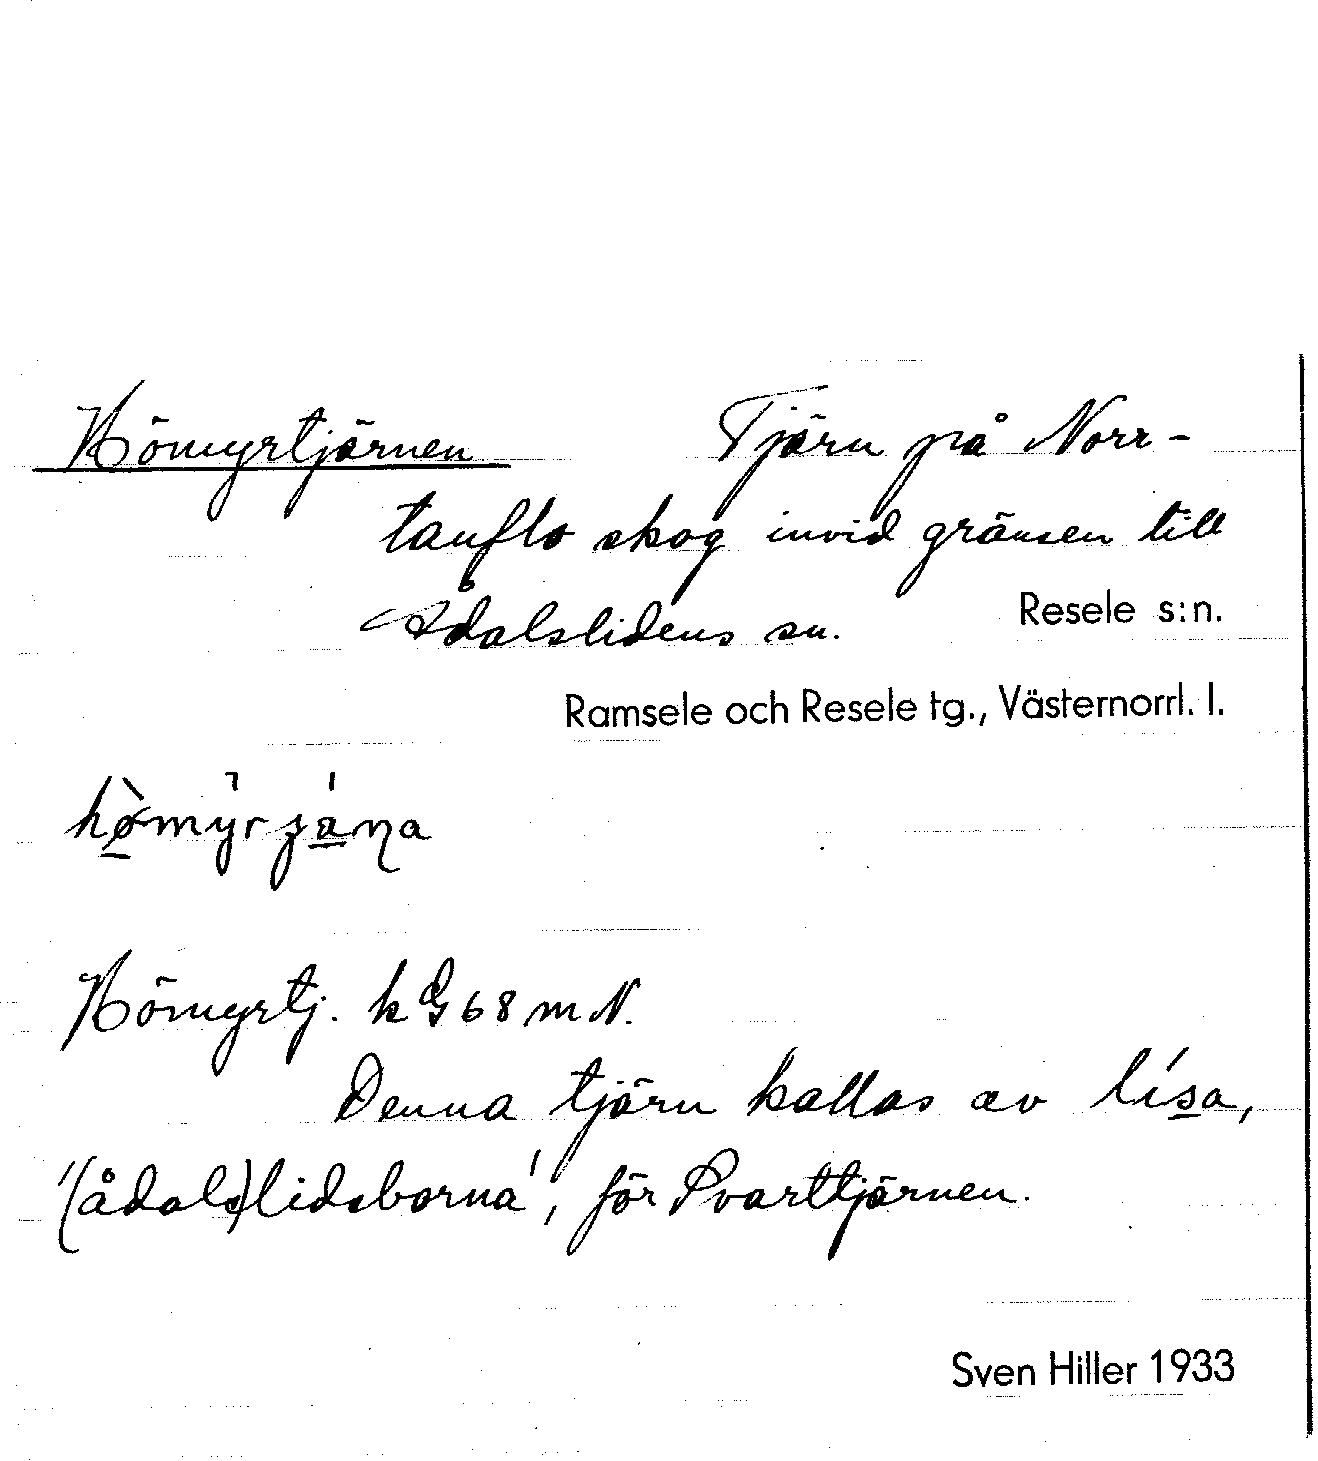 Hömyrtjärnen Tjärn på Norr-
tanflo skog invid gränsen till
Ådalslidens sn. Resele s:n.
Ramsele och Resele tg., Västernorrl. l.
Hömyrtj. k G 68 m N.
Denna tjärn kallas av
'(ådals)lidsborna', för Svarttjärnen.
Sven Hiller 1933